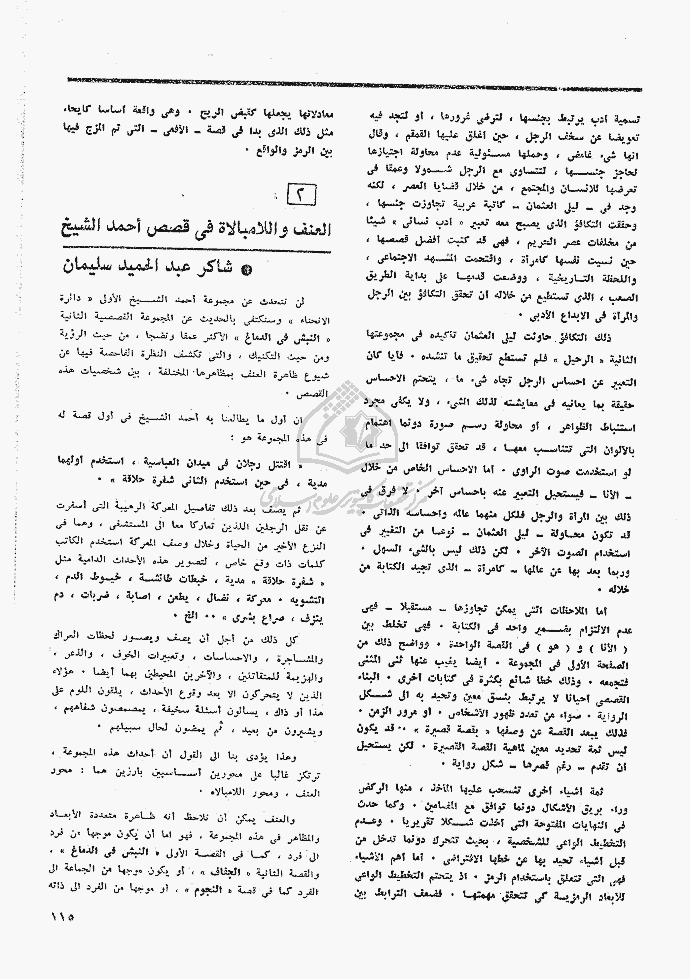 تسمية أدب يرتبط بجنسها ، لترضى غرورها ، أو لتجد فيه
تعويضا عن سخف الرجل ، حين أغلق عليها القمقم ، وقال
انها شىء غامض ، وحملها مسئولية عدم محاولة اجتيازها
لحاجز جنسها ، لتتساوى مع الرجل شمولا وعمقا فى
تعرضها للانسان والمجتمع ، من خلال قضايا العصر ، لكنه
وجد فى ـ ليلى العثمان ـ كاتبة عربية تجاوزت جنسها ،
وحققت التكافؤ الذى يصبح معه تعبير « أدب نسائى » شيئا
من مخلفات عصر الحريم ، فهى قد كتبت أفضل قصصها ،
حين نسيت نفسها كامرأة ، واقتحمت المشهد الاجتماعى ،
واللحظة التاريخية ، ووضعت قدمها على بداية الطريق
الصعب ، الذى تستطيع من خلاله أن تحقق التكافؤ بين الرجل
والمرأة فى الابداع الأدبى ٠
ذلك التكافؤ حاولت ليلى العثمان تأكيده فى مجموعتها
الثانية « الرحيل » فلم تستطع تحقيق ما تنشده ٠ فأيا كان
التعبير عن احساس الرجل تجاه شىء ما ، يتحتم الاحساس
حقيقة بما يعانيه فى معايشته لذلك الشىء ، ولا يكفى مجرد
استنباط الظواهر ، أو محاولة رسم صورة دونما اهتمام
بالألوان التى تتناسب معها ، قد تحقق توافقا الى حد ما
لو استخدمت صوت الراوى ٠ أما الاحساس الخاص من خلال
ـ الأنا ـ فيستحيل التعبير عنه باحساس آخر ٠ لا فرق فى
ذلك بين المرأة والرجل فلكل منهما عالمه واحساسه الذاتى ٠
قد تكون محاولة ـ ليلى العثمان ـ نوعا من التغيير فى
استخدام الصوت الآخر ٠ لكن ذلك ليس بالشىء السهل ٠
وربما بعد بها عن عالمها ـ كامرأة ـ الذى تجيد الكتابة من
خلاله ٠
أما الملاحظات التى يمكن تجاوزها ـ مستقبلا ـ فهى
عدم الالتزام بضمير واحد فى الكتابة ٠ فهى تخلط بين
( الأنا ) و ( هو ) فى القصة الواحدة ٠ وواضح ذلك من
الصفحة الأولى فى المجموعة ٠ أيضا يغيب عنها ثنى المثنى
فتجمعه ٠ وذلك خطأ شائع بكثرة فى كتابات أخرى ٠ البناء
القصصى أحيانا لا يرتبط بنسق معين وتحيد به الى شكل
الرواية ٠ سواء من تعدد ظهور الأشخاص ، أو مرور الزمن ٠
فذلك يبعد القصة عن وصفها « بقصة قصيرة » ٠٠ قد يكون
ليس ثمة تحديد معين لماهية القصة القصيرة ٠ لكن يستحيل
أن تقدم ـ رغم قصرها ـ شكل رواية ٠
ثمة أشياء أخرى تنسحب عليها المآخذ ، منها الركض
وراء بريق الأشكال دونما توافق مع المضامين ٠ وكما حدث
فى النهايات المفتوحة التى أخذت شكلا تقريريا ٠ وعدم
التخطيط الواعى للشخصية ، بحيث تتحرك دونما تدخل من
قبل أشياء تحيد بها عن خطها الافتراضى ٠ أما أهم الأشياء
فهى التى تتعلق باستخدام الرمز ٠ اذ يتحتم التخطيط الواعى
للأبعاد الرمزية كى تتحقق مهمتها ٠ فضعف الترابط بين
معادلاتها يجعلها كقبض الريح ٠ وهى واقعة أساسا كايحاء،
مثل ذلك الذى بدا فى قصة ـ الأفعى ـ التى تم المزج فيها
بين الرمز والواقع ٠
٢
العنف واللامبالاة فى قصص أحمد الشيخ
شاكر عبد الحميد سليمان
لن نتحدث عن مجموعة أحمد الشيخ الأولى « دائرة
الانحناء » وسنكتفى بالحديث عن المجموعة القصصية الثانية
« النبش فى الدماغ » الأكثر عمقا ونضجا ، من حيث الرؤية
ومن حيث التكنيك ، والتى تكشف النظرة الفاحصة فيها عن
شيوع ظاهرة العنف بمظاهرها المختلفة ، بين شخصيات هذه
القصص ٠
ان أول ما يطالعنا به أحمد الشيخ فى أول قصة له
فى هذه المجموعة هو :
« اقتتل رجلان فى ميدان العباسية ، استخدم أولهما
مدية ، فى حين استخدم الثانى شفرة حلاقة » ٠
ثم يصف بعد ذلك تفاصيل المعركة الرهيبة التى أسفرت
عن نقل الرجلين اللذين تعاركا معا الى المستشفى ، وهما فى
النزع الأخير من الحياة وخلال وصف المعركة استخدم الكاتب
كلمات ذات وقع خاص ، لتصوير هذه الأحداث الدامية مثل
« شفرة حلاقة » مدية ، خبطات طائشة ، خيوط الدم ،
التشويه ٠ معركة ، نضال ، يطعن ، اصابة ، ضربات ، دم
ينزف ، صراع بشرى » ٠٠ الخ ٠
كل ذلك من أجل أن يصف ويصور لحظات العراك
والمشاجرة ، والاحساسات ، وتعبيرات الخوف ، والذعر ٠
والهزيمة للمتقاتلين ، والآخرين المحيطين بهما أيضا ٠ هؤلاء
الذين لا يتحركون الا بعد وقوع الأحداث ، يلقون اللوم على
هذا أو ذاك ، يسألون أسئلة سخيفة ، يمصمصون شفاههم ،
ويشيرون من بعيد ، ثم يمضون لحال سبيلهم ٠
وهذا يؤدى بنا الى القول أن أحداث هذه المجموعة ،
ترتكز غالبا على محورين أساسيين بارزين هما : محور
العنف ، ومحور اللامبالاه ٠
والعنف يمكن أن نلاحظ أنه ظاهرة متعددة الأبعاد
والمظاهر فى هذه المجموعة ، فهو اما أن يكون موجها من فرد
الى فرد ، كما فى القصة الأولى « النبش فى الدماغ » ،
والقصة الثانية « الجفاف » ، أو يكون موجها من الجماعة الى
الفرد كما فى قصة « النجوم » ، أو موجها من الفرد الى ذاته
١١٥